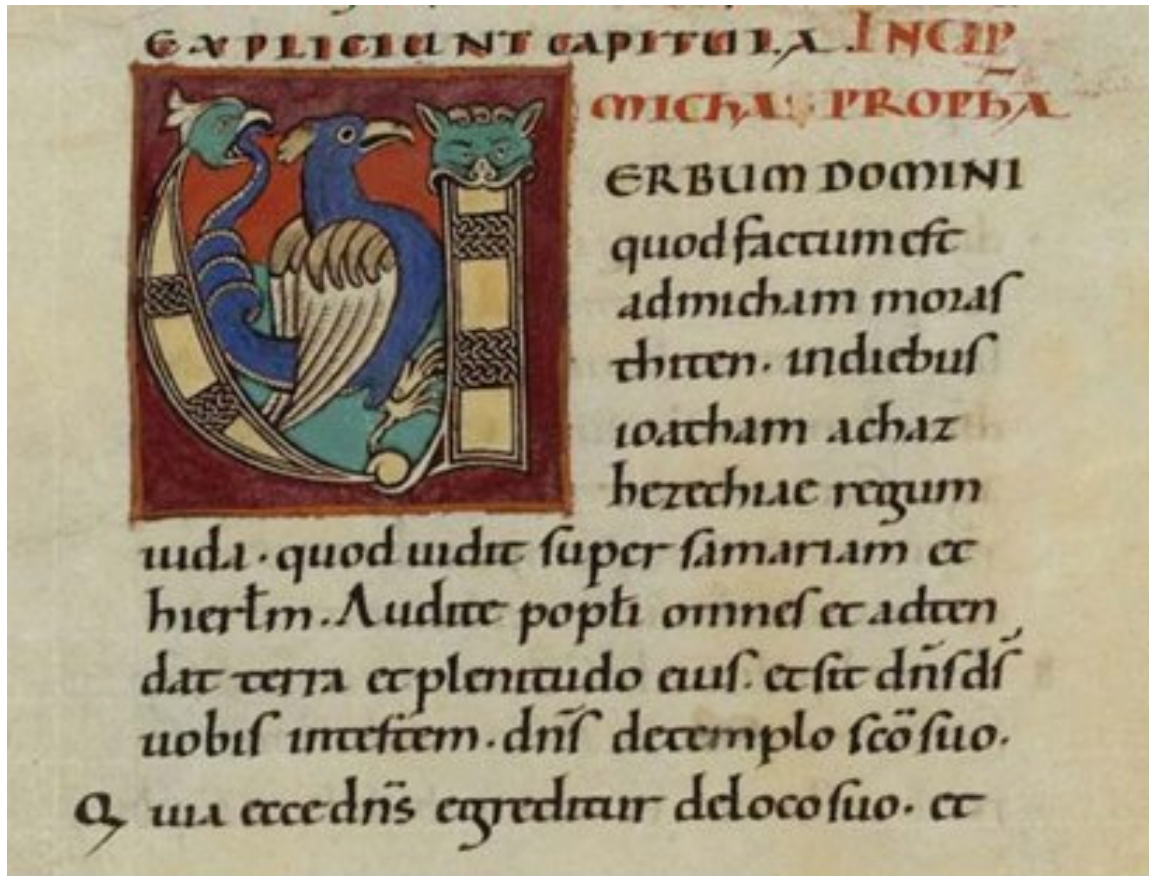 EXPLICIUNT CAPITULA. INCIP̅
MICHAS PROPHA
VERBUM DOMINI
quod factum est
ad micham moras
thiten. in diebus
ioatham achaz
hezechiae regum
iuda. quod uidit super samariam et
hierłm. Audite popłi omnes et adten
dat terra et plenitudo eius. et sit dn̄s ds̄
uobis in testem. dn̄s de templo sc̄o suo.
Quia ecce dn̄s egreditur de loco suo. et